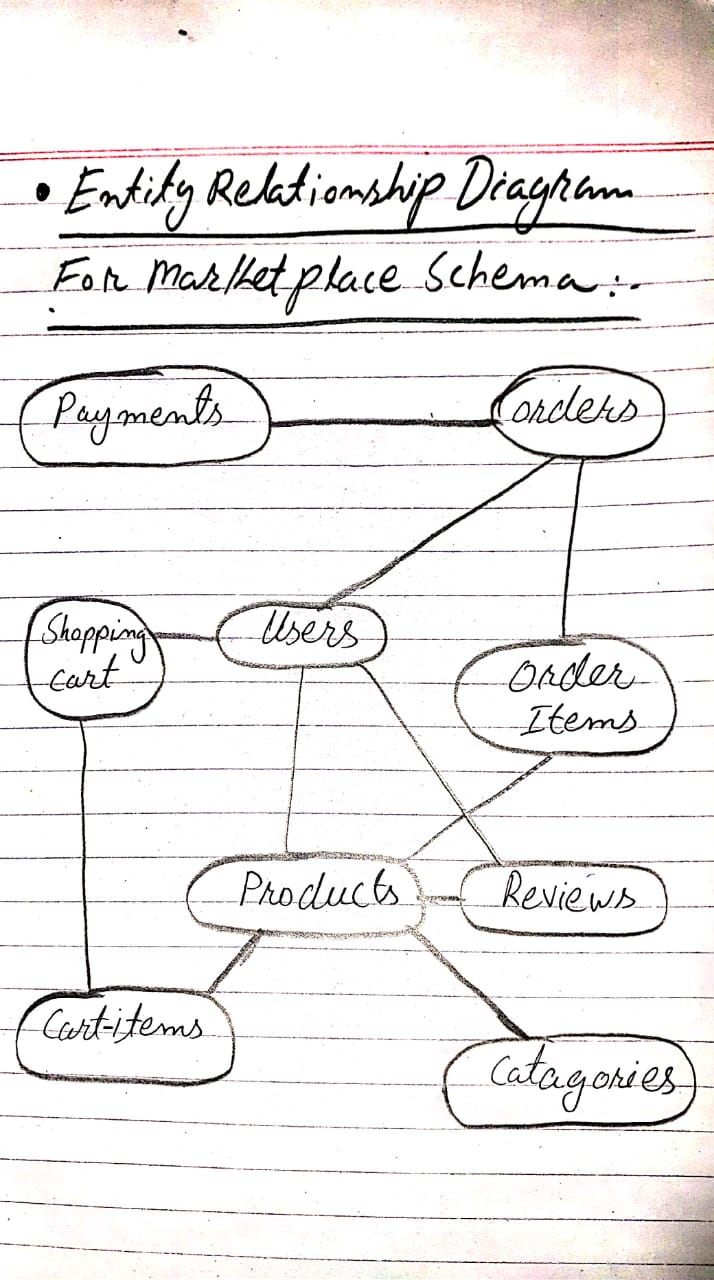 • Entity Relationship Diagram
For Marketplace Schema:.
Payments
orders
Shopping
cart
Users
Order
Items
Products
Reviews
Cart-items
Catagories